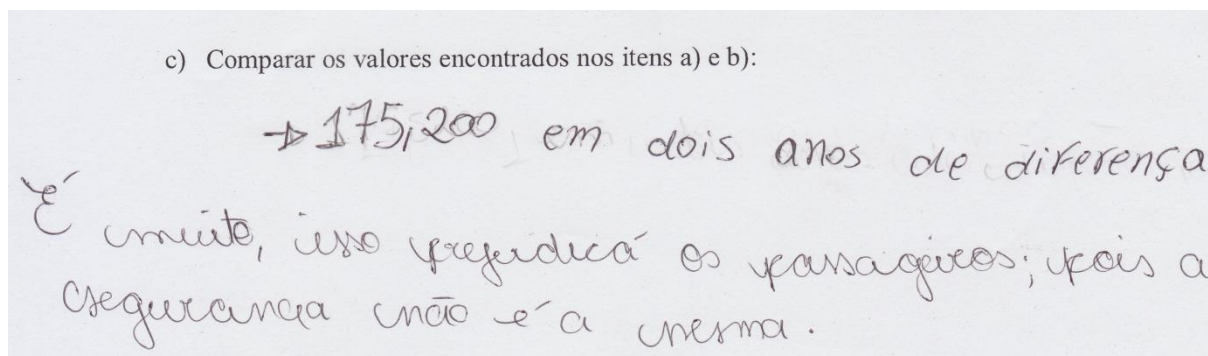 c) Comparar os valores encontrados nos itens a) e b):
→ 175,200 em dois anos de diferença
É muito, isso prejudicá os passageiros; pois a
segurança não é a mesma.